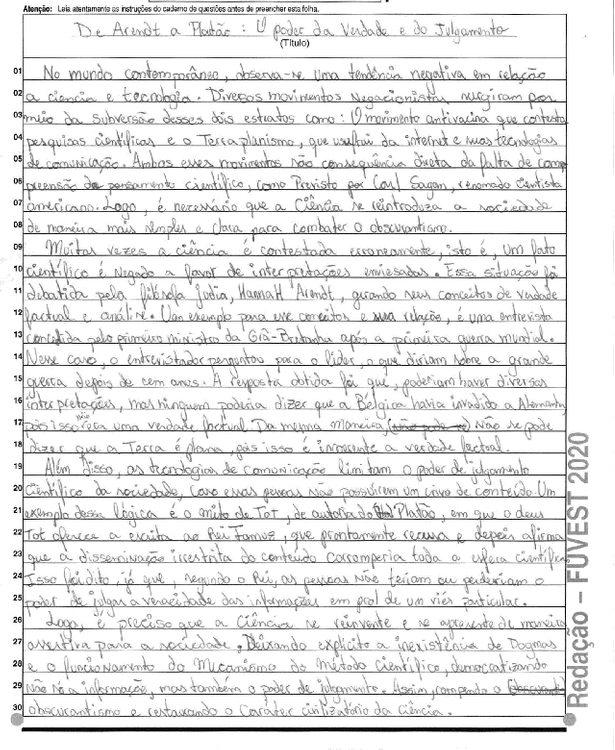 Atenção: Leia atentamente as instruções do caderno de questões antes de preencher esta folha.
De Arendt a Platão: O poder da Verdade e do Julgamento
(Título)
01 No mundo contemporâneo, observa-se uma tendência negativa em relação
02 a ciência e tecnologia. Diversos movimentos negacionistas surgiram por
03 meio da subversão desses dois estratos como: O movimento antivacina que contesta
04 pesquisas científicas e o Terraplanismo, que usufrui da internet e suas tecnologias
05 de comunicação. Ambos esses movimentos são consequência direta da falta de com
06 preensão do pensamento científico, como Previsto por Carl Sagan, renomado cientista
07 americano. Logo, é necessário que a Ciência se reintroduza a sociedade
08 de maneira mais simples e clara para combater o obscurantismo.
09 Muitas vezes a ciência é contestada erroneamente, isto é, um fato
10 científico é negado a favor de interpretações enviesadas. Essa situação foi
11 debatida pela filósofa Judia, HannaH Arendt, gerando seus conceitos de verdade
12 factual e análise. Um exemplo para esse conceitos e sua relação, é uma entrevista
13 concedida pelo primeiro ministro da Grã-Bretanha após a primeira guerra mundial.
14 Nesse caso, o entrevistador perguntou para o líder, o que diriam sobre a grande
15 guerra depois de cem anos. A resposta obtida foi que, poderiam haver diversas
16 interpretações, mas ninguem poderia dizer que a Bélgica havia invadido a Alemanha,
17 pois isso não era uma verdade factual. Da mesma maneira, não se pode
18 dizer que a Terra é plana, pois isso é inerente a verdade factual.
19 Além disso, as tecnologias de comunicação limitam o poder de julgamento
20 Científico da sociedade, caso essas pessoas não possuírem um crivo de conteúdo. Um
21 exemplo dessa lógica é o mito de Tot, de autoria do Platão, em que o deus
22 Tot oferece a escrita ao Rei Tamuz, que prontamente recusa e depois afirma
23 que a disseminação irrestrita do conteúdo corromperia toda a esfera científica.
24 Isso foi dito, já que, segundo o Rei, as pessoas não teriam ou perderiam o
25 poder de julgar a veracidade das informações em prol de um viés particular.
26 Logo, é preciso que a Ciência se reinvente e se apresente de maneira
27 assertiva para a sociedade. Deixando explícito a inexistência de Dogmas
28 e o funcionamento do Mecanismo do Método Científico, democratizando
29 não só a informação, mas também o poder de julgamento. Assim, rompendo o
30 obscurantismo e restaurando o Caráter civilizatório da Ciência.
Redação – FUVEST 2020